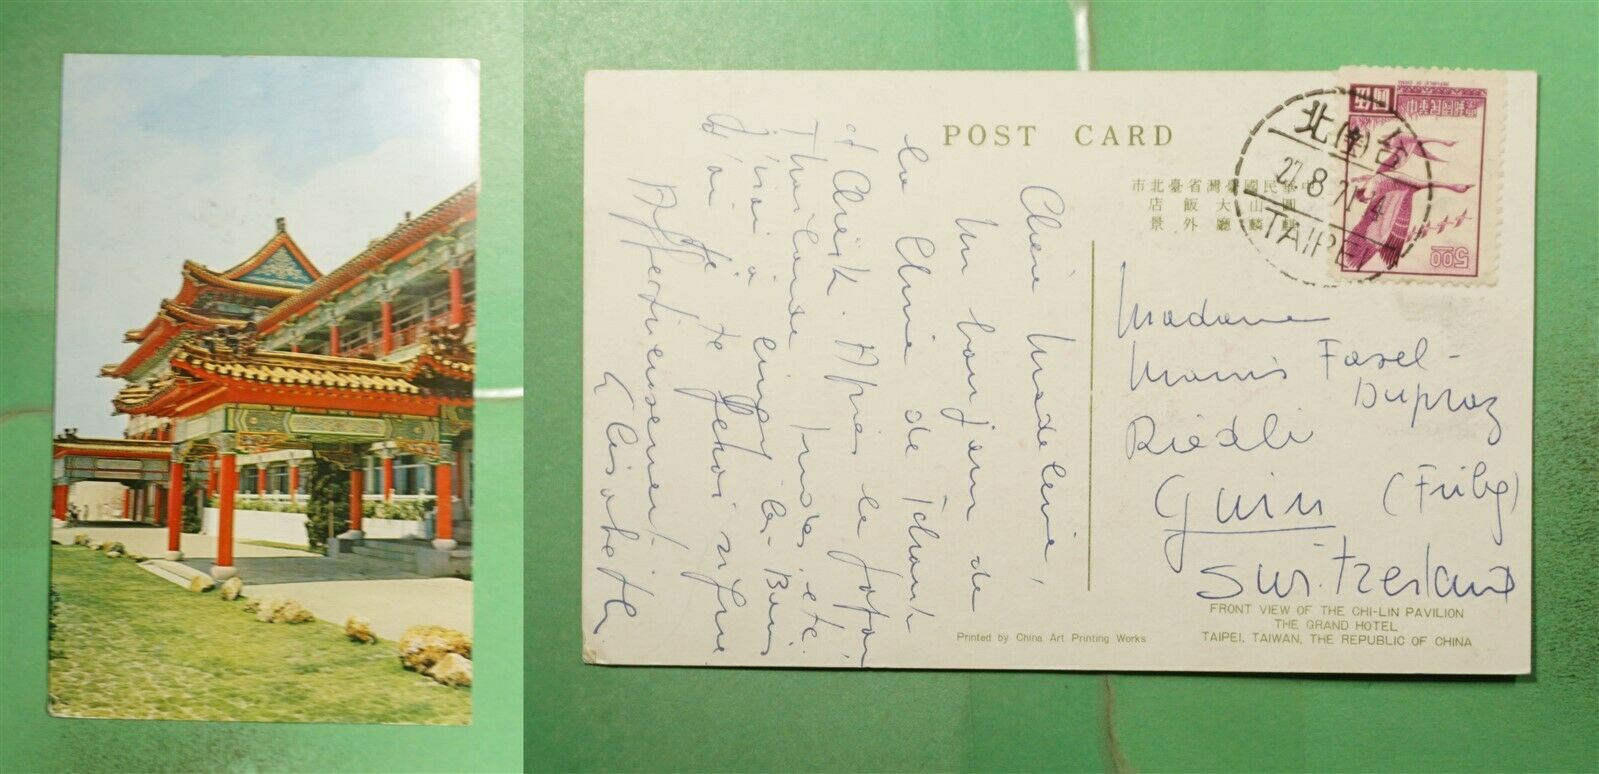 POST CARD
市北臺省灣臺國民華中
店飯大山圓
景外廳麟麒
北(臺)台
27.8.71. 4
TAIPEI
REPUBLIC OF CHINA
中華民國郵票
5.00
Chère Madeleine,
Un bonjour de
la Chine de Tchank
et Cheik. Après le Japon
Thaïlande Indes, etc.
j'irai à
Affectueusement
Elisabeth
Madame
Fasel-
Dupraz
Riedli
Guin (Fribg)
Switzerland
FRONT VIEW OF THE CHI-LIN PAVILION
THE GRAND HOTEL
TAIPEI, TAIWAN, THE REPUBLIC OF CHINA
Printed by China Art Printing Works